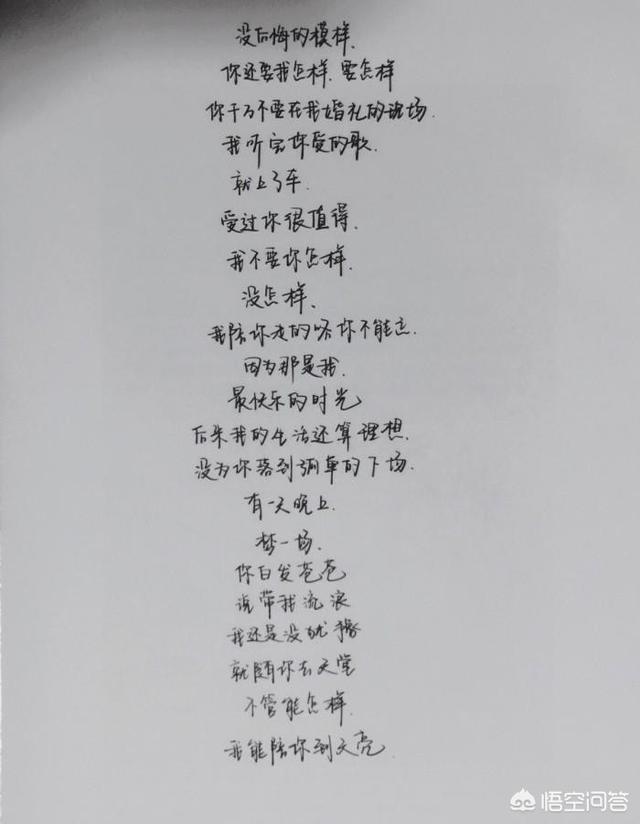 没后悔的模样.
你还要我怎样.要怎样
你千万不要在我婚礼的现场.
我听完你爱的歌.
就上了车.
爱过你很值得.
我不要你怎样.
没怎样.
我陪你走的路你不能忘.
因为那是我.
最快乐的时光
后来我的生活还算理想.
没为你落到孤单的下场.
有一天晚上.
梦一场.
你白发苍苍
说带我流浪
我还是没犹豫
就随你去天堂
不管能怎样.
我能陪你到天亮.
悟空问答